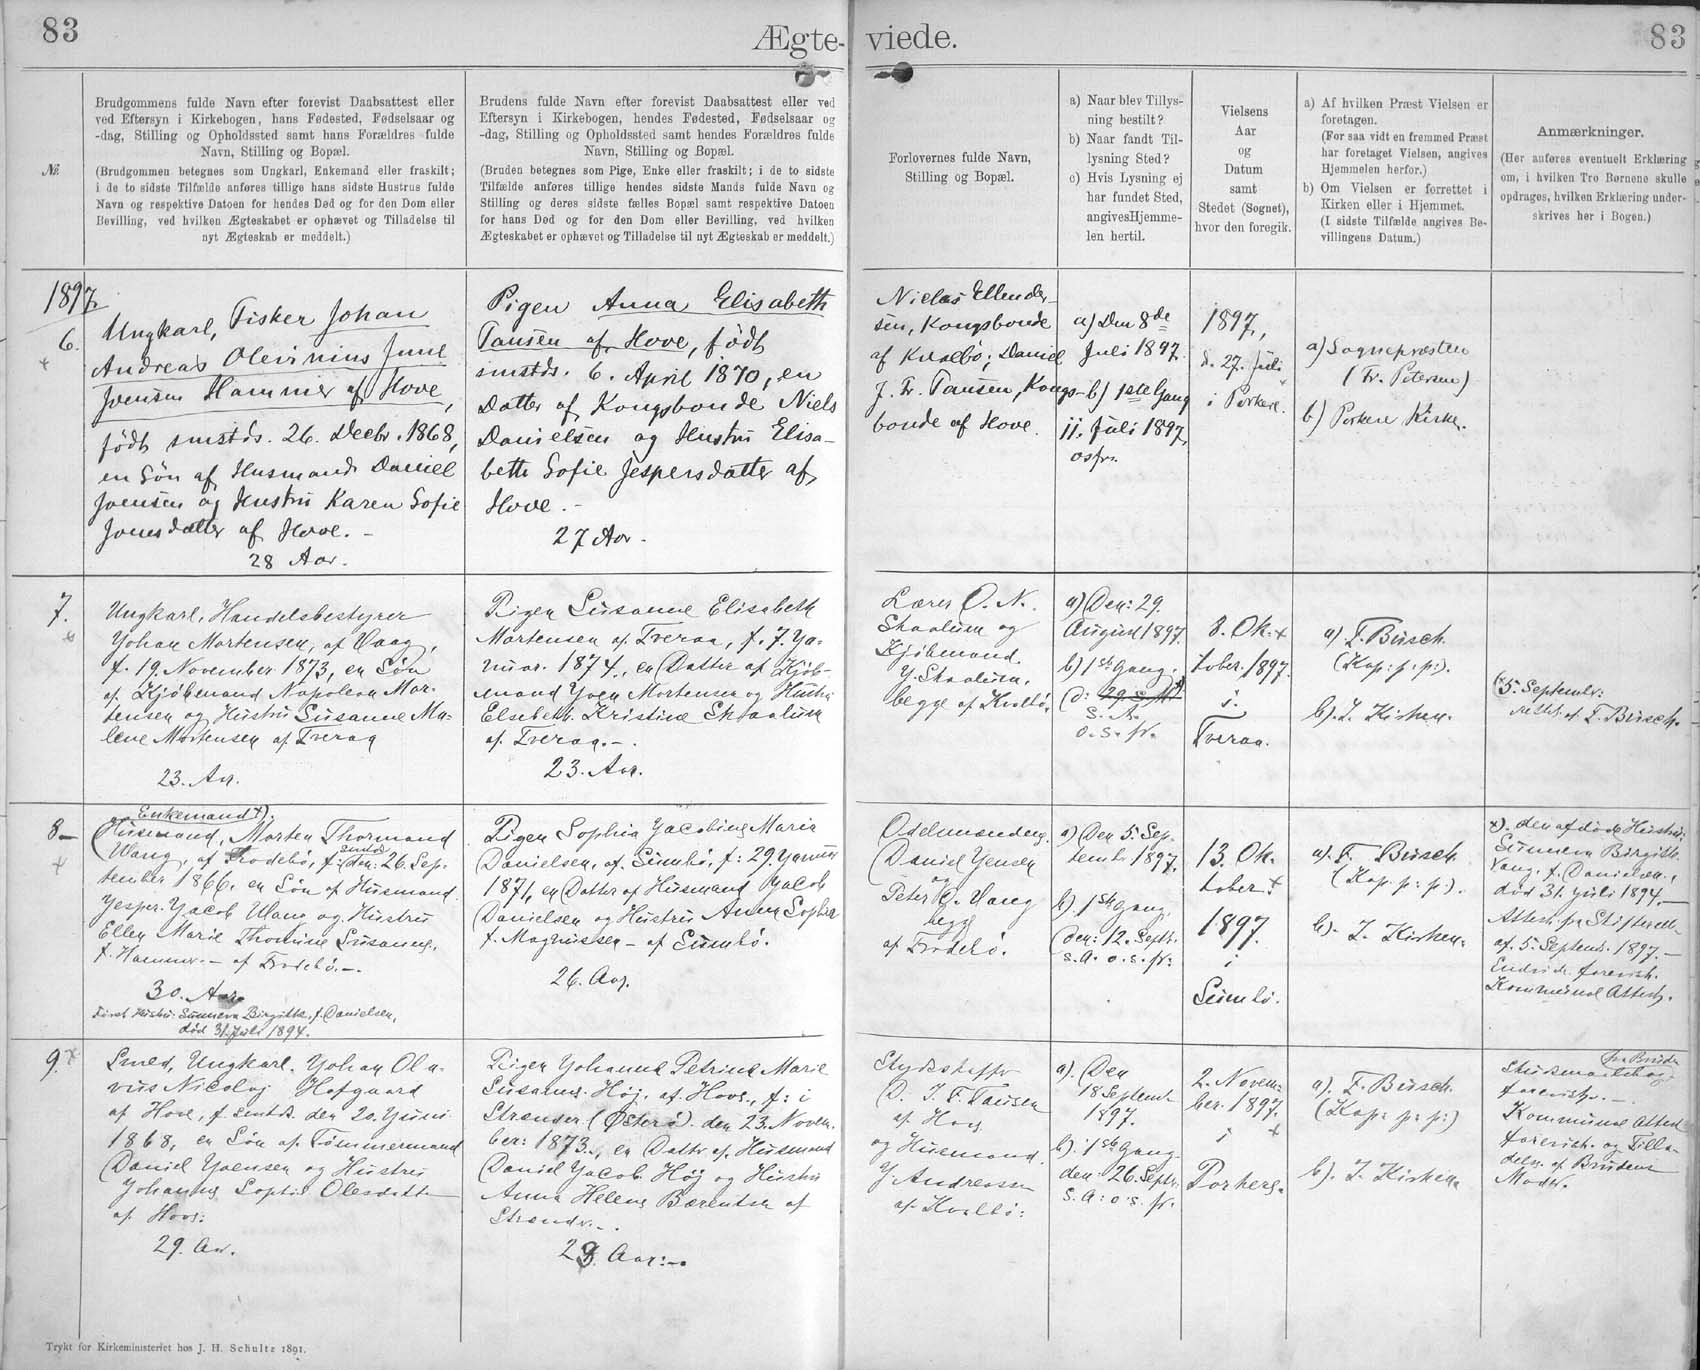 83
Ægte-
Brudgommens fulde Navn efter forevist Daabsattest eller
ved Eftersyn i Kirkebogen, hans Fødested, Fødselsaar og
-dag, Stilling og Opholdssted samt hans Forældres fulde
Navn, Stilling og Bopæl.
(Brudgommen betegnes som Ungkarl, Enkemand eller fraskilt;
i de to sidste Tilfælde anføres tillige hans sidste Hustrus fulde
Navn og respektive Datoen for hendes Død og for den Dom eller
Bevilling, ved hvilken Ægteskabet er ophævet og Tilladelse til
nyt Ægteskab er meddelt.)
№
Brudens fulde Navn efter forevist Daabsattest eller ved
Eftersyn i Kirkebogen, hendes Fødested, Fødselsaar og
-dag, Stilling og Opholdssted samt hendes Forældres fulde
Navn, Stilling og Bopæl.
(Bruden betegnes som Pige, Enke eller fraskilt; i de to sidste
Tilfælde anføres tillige hendes sidste Mands fulde Navn og
Stilling og deres sidste fælles Bopæl samt respektive Datoen
for hans Død og for den Dom eller Bevilling, ved hvilken
Ægteskabet er ophævet og Tilladelse til nyt Ægteskab er meddelt.)
1897
6.
Ungkarl, Fisker Johan
Andreas
Joensen Hammer af Hove,
født smstds. 26. Decbr. 1868,
en Søn af Husmand Daniel
Joensen og Hustru Karen Sofie
Jonesdatter af Hove. -
28 Aar.
Pigen Anna Elisabeth
Tausen af Hove, født
smstds. 6. April 1870, en
Datter af Kongsbonde Niels
Danielsen og Hustru Elisa-
beth Sofie Jespersdatter af
Hove. -
27 Aar.
7.
Ungkarl, Handelsbestyrer
Johan Mortensen, af Vaag,
f. 19. November 1873, en Søn
af Kjøbmand Napoleon Mor-
tensen og Hustru Susanne Ma-
lene Mortensen af Tveraa
23. Aar.
Pigen Susanne Elisabeth
Mortensen af Tveraa, f. 7. Ja-
nuar. 1874., en Datter af Kjøb-
mand Joen Mortensen og Hustru
Elsebeth Kristine Skaalum
af Tveraa. -.
23. Aar.
8
Enkemand +).
Husmand, Morten Thormand
Wang, af Frodebø, f. smds den: 26. Sep-
tember 1866, en Søn af Husmand
Jesper Jacob Wang og Hustru
Ellen Marie Thomine Susanne,
f. Hammer. - af Frodebø. -.
30. Aar.
Første Hustru: Sunneva Birgitte, f. Danielsen,
død 31. Juli 1894.
Pigen Sophia Jacobine Marie
Danielsen, af Sumbø, f: 29. Januar
1871, en Datter af Husmand Jacob
Danielsen og Hustru Anna Sophie
f. Magnussen - af Sumbø.
26. Aar.
9.
Smed, Ungkarl. Johan Ola-
vus Nicolaj Hofgaard
af Hove, f. smtds den 20. Juni
1868, en Søn af Tømmermand
Daniel Joensen og Hustru
Johanne Sophie Olesdatter
af Hove:
29. Aar.
Pigen Johanne Petrine Marie
Susanne Høj, af Hove, f: i
Strænder (Østerø) den 23. Novem-
ber: 1873., en Datter af Husmand
Daniel Jacob Høj og Hustru
Anna Helene Bærentsen af
Strænder. -.
Aar: -.
Trykt for Kirkeministeriet hos J. H. Schultz 1891.
viede.
83
Forlovernes fulde Navn,
Stilling og Bopæl.
a) Naar blev Tillys-
ning bestilt?
b) Naar fandt Til-
lysning Sted?
c) Hvis Lysning ej
har fundet Sted,
angives Hjemme-
len hertil.
Vielsens
Aar
og
Datum
samt
Stedet (Sognet),
hvor den foregik.
a) Af hvilken Præst Vielsen er
foretagen.
(For saa vidt en fremmed Præst
har foretaget Vielsen, angives
Hjemmelen herfor.)
b) Om Vielsen er forrettet i
Kirken eller i Hjemmet.
(I sidste Tilfælde angives Be-
villingens Datum.)
Anmærkninger.
(Her anføres eventuelt Erklæring
om, i hvilken Tro Børnene skulle
opdrages, hvilken Erklæring under-
skrives her i Bogen.)
Niclas Ellender-
sen, Kongsbonde
af Kvalbø; Daniel
J. Fr. Tausen, Kongs-
bonde af Hove.
a) Den 8de
Juli 1897.
b) 1ste Gang
11. Juli 1897,
osfr.
1897,
d. 27. Juli
i Porkere.
a) Sognepræsten
(Fr. Petersen)
b) Porkere Kirke.
Lærer O. N.
Skaalum og
Kjøbmand.
J. Skaalum,
begge af Kvalbø.
a) Den: 29.
August 1897.
b) 1ste Gang.
S. A.
o. s. fr.
8. Ok-
tober. 1897.
i.
Tveraa.
a) F. Busch.
(Kap: p: p:).
b). I. Kirken.
5. Septembr:
rettet af F. Busch.
Odelsmændene
Daniel Jensen
og
Peter Wang
begge
af Frodebø.
a) Den 5. Sep-
tembr. 1897.
b). 1ste Gang
den: 12. Septbr.
s. A. o. s. fr:
13. Ok-
tober.
1897.
i
Sumbø.
a). F. Busch.
(Kap. p: p:).
b)- I. Kirken.
x). den afdøde Hustru:
Sunneva Birgitte
Vang, f. Danielsen.,
død 31. Juli 1894. -
Attest fra Skifteretten
af 5. Septemb. 1897. -
forevist.
Kommunal Attest.
D. J. F. Tausen
af Hove
og Husmand.
J. Andreasen
af Kvalbø:
a). Den
18 Septembr
1897.
b). 1ste Gang
den: 26. Septbr.
s. A: o: s. fr.
2. Novem-
ber. 1897.
i
Porkere.
a). F. Busch.
(Kap: p: p:)
b). I. Kirken
fra Brudens
forevist. -.
Kommunal Attest
forevist. og Tilla-
delse af Brudens
Moder.